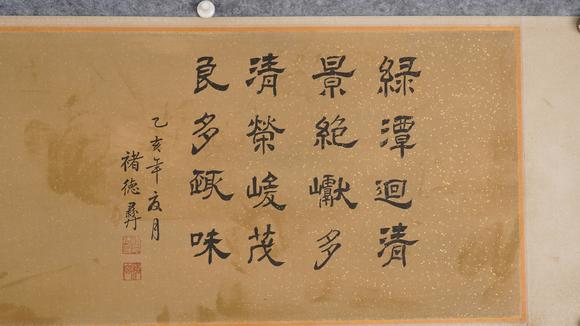 緑潭迴清
景絶巘多
清榮峻茂
良多趣味
乙亥年夏月
褚德彝